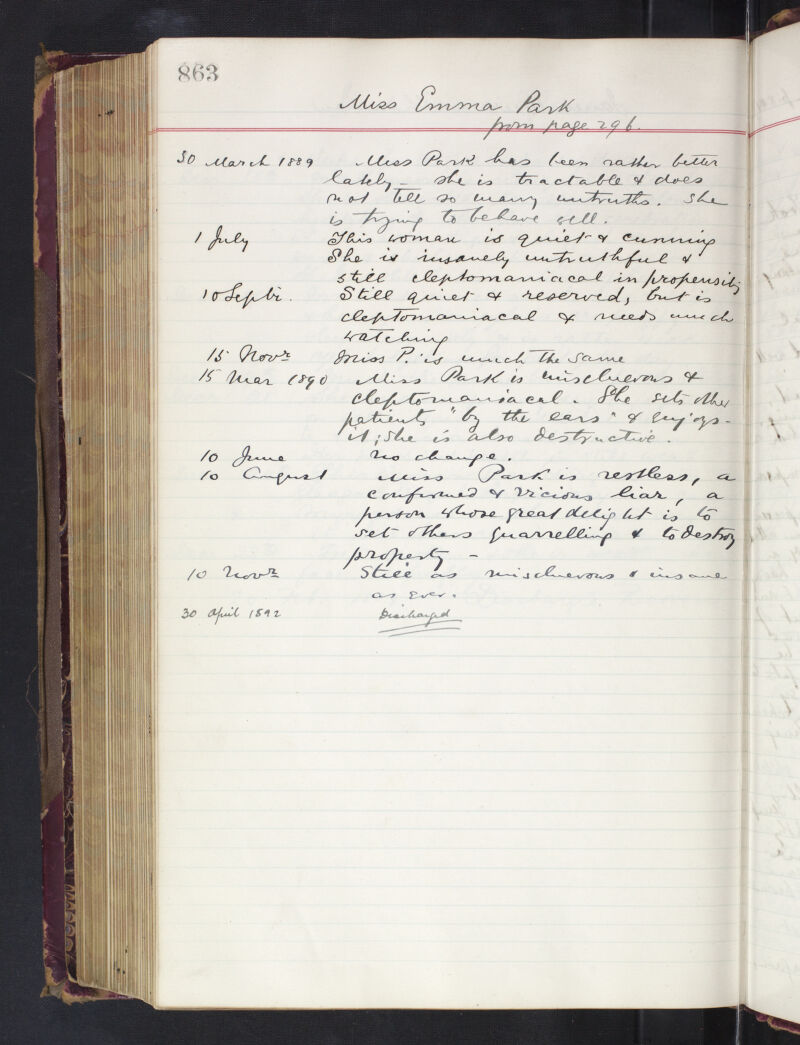 863
Miss Emma Park
from page 296.
30 March 1889 Miss Park has been rather better
lately - she is tractable & does
not tell so many untruths. She
is trying to behave well.
1 July This woman is quiet & cunning
She is insanely untruthful &
still cleptomaniacal in propensity
10 Septr. Still quiet & reserved, but is
cleptomaniacal & needs much
watching
15 Novr Miss P. is much the same
15 Mar 1890 Miss Park is mischievous &
cleptomaniacal. She sets other
patients "by the ears" & enjoys
it; she is also destructive.
10 June No change.
10 August Miss Park is restless, a
confirmed & vicious liar, a
person whose great delight is to
set others quarrelling & to destroy
property -
10 Novr Still as mischievous & insane
as ever.
30 April 1892 Discharged